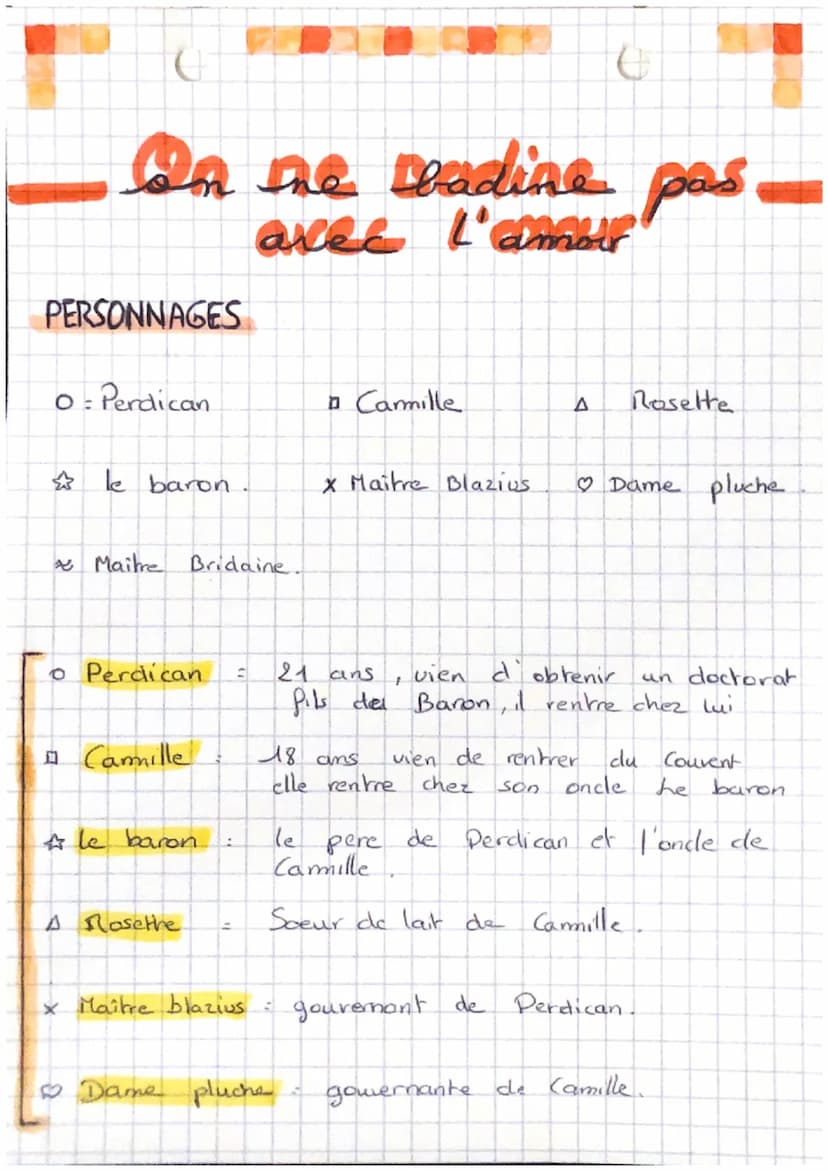 On ne badine pas
avec l'amour
PERSONNAGES
O = Perdican □ Camille △ Rosette
☆ le baron. x Maitre Blazius. ♡ Dame pluche.
≈ Maitre Bridaine.
O Perdican = 21 ans, vien d'obtenir un doctorat
fils du Baron, il rentre chez lui
□ Camille : 18 ans vien de rentrer du Couvent
elle rentre chez son oncle Le baron
☆ le baron : le pere de Perdican et l'oncle de
Camille.
△ Rosette = Soeur de lait de Camille.
x Maître blazius : gouvernant de Perdican.
♡ Dame pluche : gouvernante de Camille.